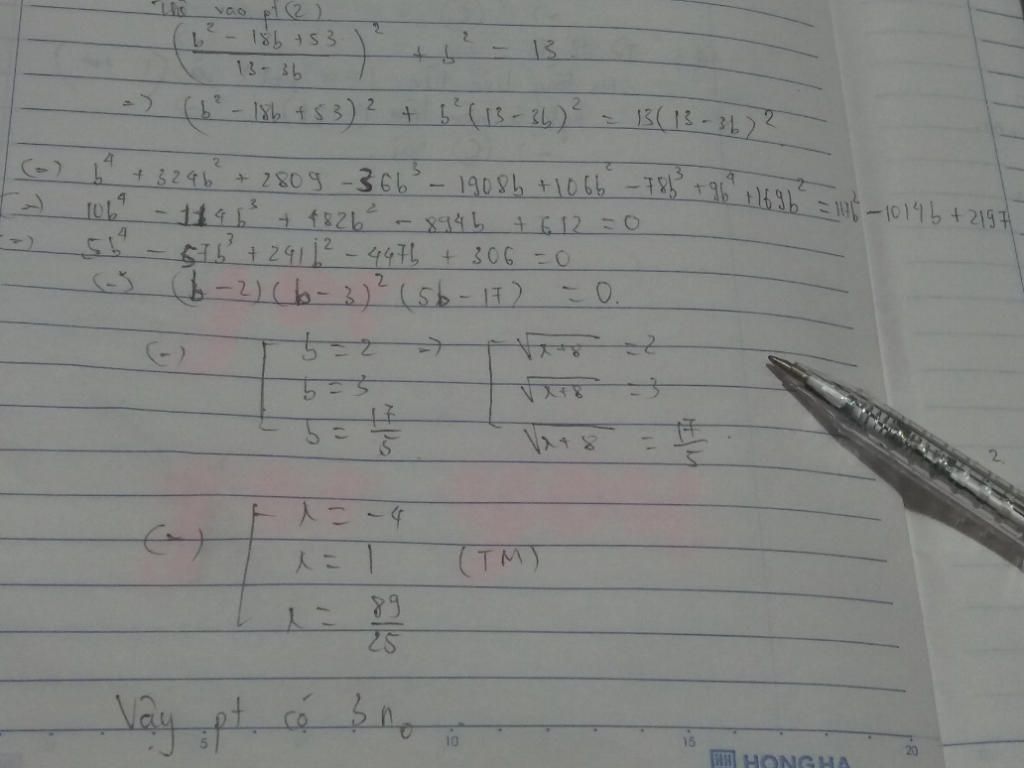 Thế vào pt (2)
(b² - 18b + 53 / 13 - 3b)² + b² = 13
=> (b² - 18b + 53)² + b²(13 - 3b)² = 13(13 - 3b)²
(=) b⁴ + 324b² + 2809 - 36b³ - 1908b + 106b² - 78b³ + 9b⁴ + 169b² = 117b² - 1014b + 2197
(=) 10b⁴ - 114b³ + 482b² - 894b + 612 = 0
(=) 5b⁴ - 57b³ + 241b² - 447b + 306 = 0
(=) (b - 2)(b - 3)²(5b - 17) = 0.
(=) [ b = 2 => [ √x+8 = 2
b = 3 √x+8 = 3
b = 17/5 √x+8 = 17/5.
2.
(=) [ x = -4
x = 1 (TM)
x = 89/25
Vậy pt có 3 n₀
5 10 15 20
HONG HA